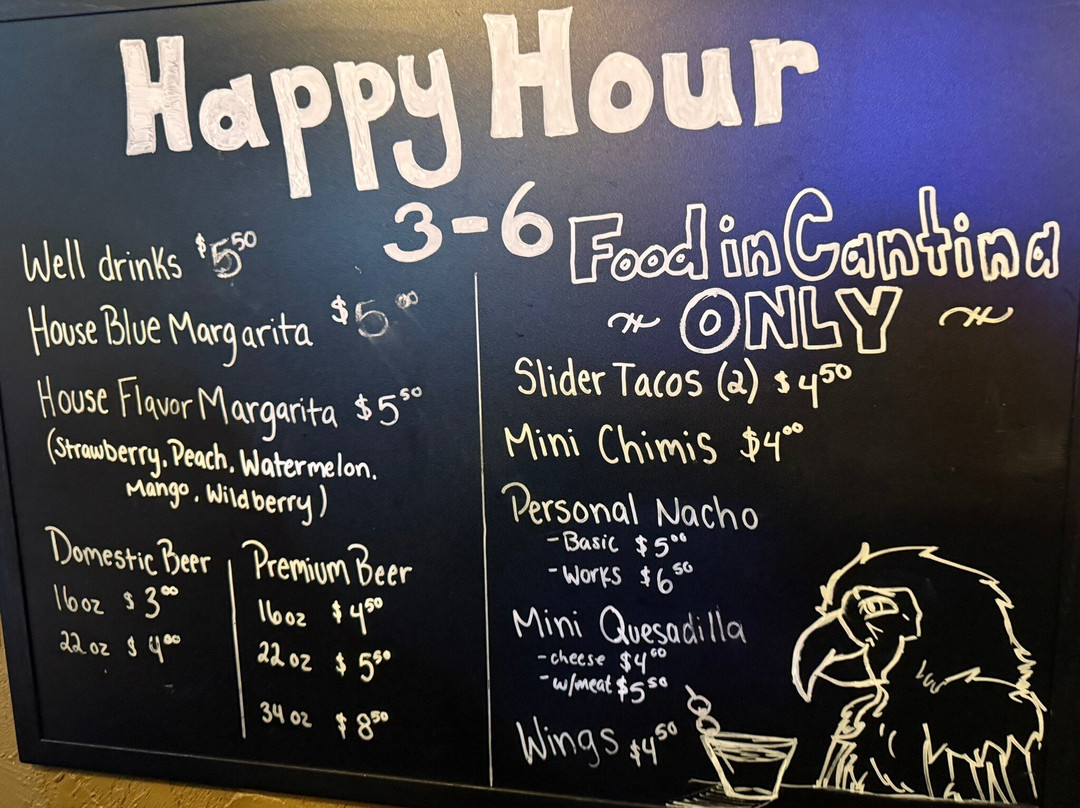 Happy Hour
3-6
Well drinks $5.50
House Blue Margarita $5.00
House Flavor Margarita $5.50
(Strawberry, Peach, Watermelon,
Mango, Wildberry)
Domestic Beer
16oz $3.00
22 oz $4.00
Premium Beer
16oz $4.50
22 oz $5.50
34 oz $8.50
Food in Cantina
ONLY
Slider Tacos (2) $4.50
Mini Chimis $4.00
Personal Nacho
-Basic $5.00
-Works $6.50
Mini Quesadilla
-cheese $4.00
-w/meat $5.50
Wings $4.50